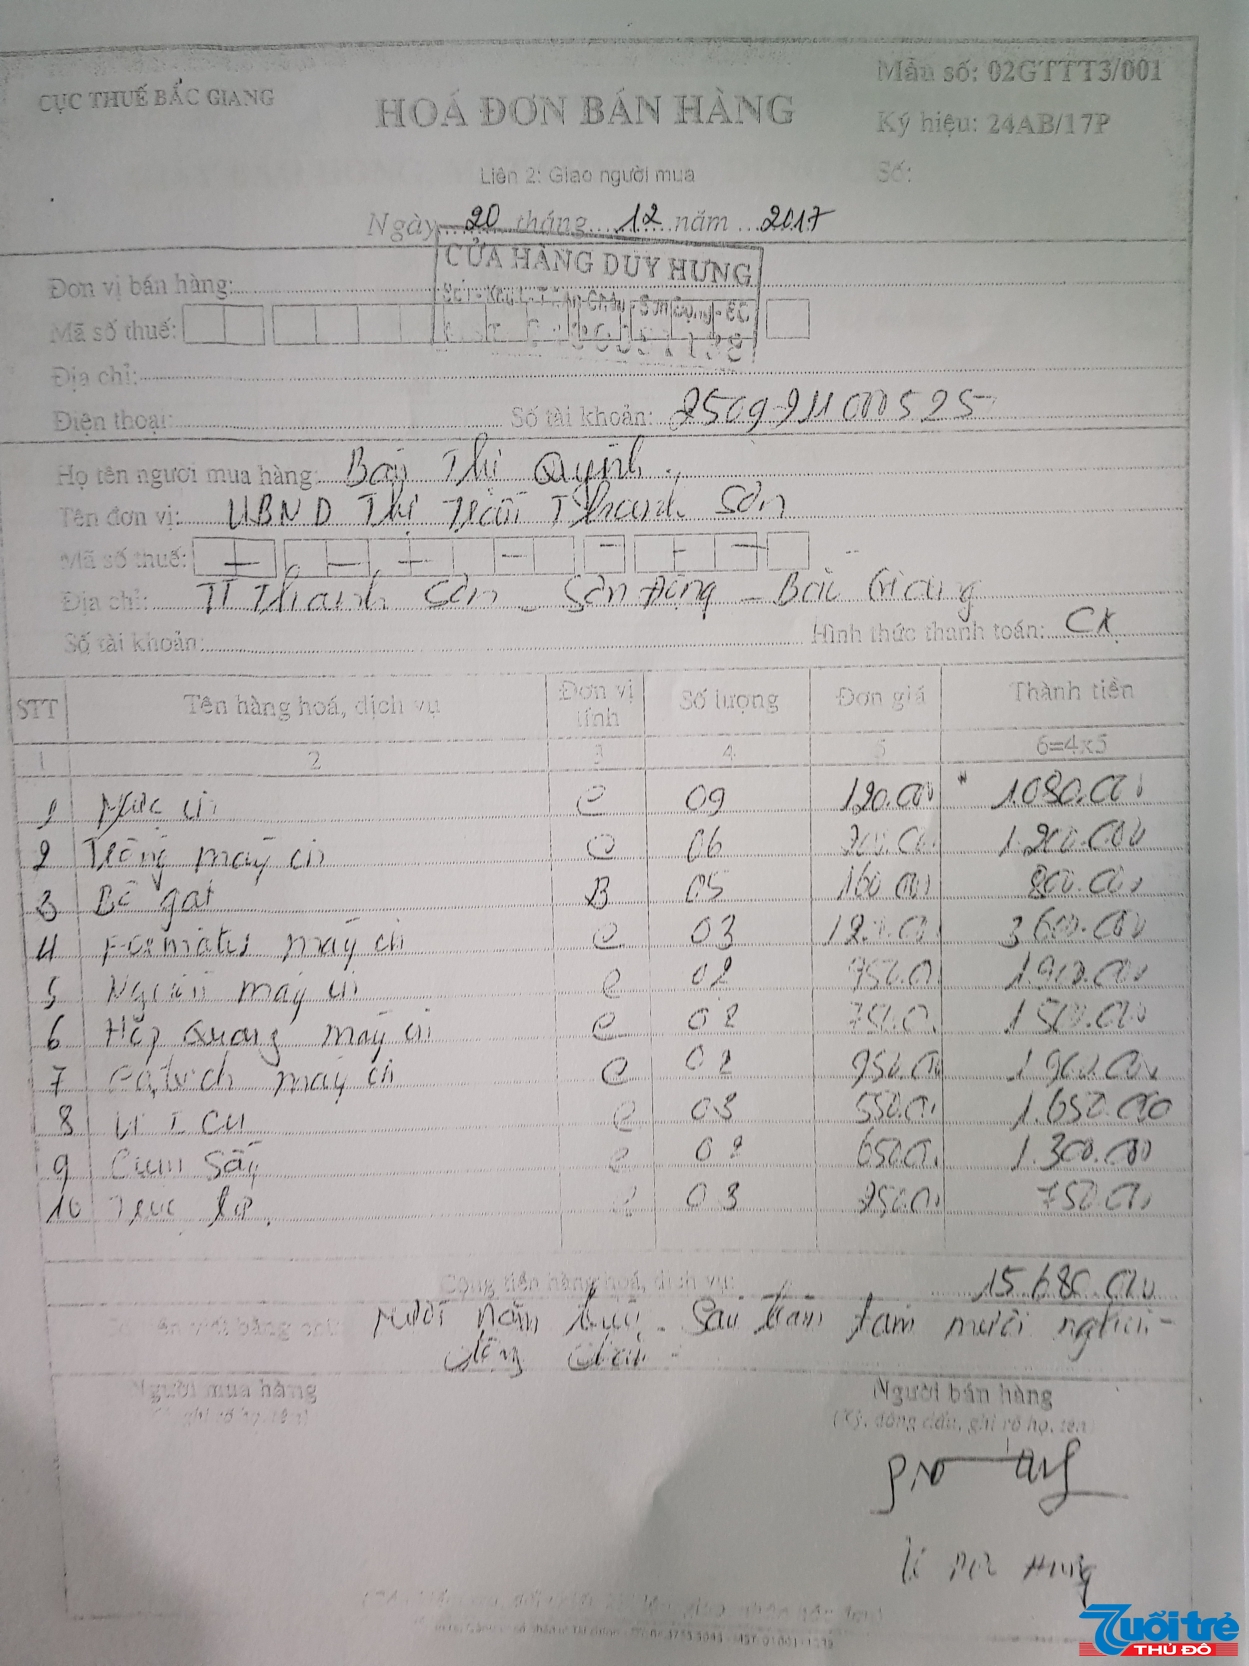 CỤC THUẾ BẮC GIANG
HOÁ ĐƠN BÁN HÀNG
Mẫu số: 02GTTT3/001
Ký hiệu: 24AB/17P
Liên 2: Giao người mua
Số:
Ngày 20 tháng 12 năm 2017
CỬA HÀNG DUY HƯNG
Đơn vị bán hàng:
Mã số thuế:
Địa chỉ:
Điện thoại: Số tài khoản:
Họ tên người mua hàng: Thị Quỳnh
Tên đơn vị: UBND Thị Trấn Thanh Sơn
Mã số thuế:
Địa chỉ: TT Thanh Sơn - Sơn Động - Bắc Giang
Số tài khoản: Hình thức thanh toán: CK
STT Tên hàng hoá, dịch vụ Đơn vị tính Số lượng Đơn giá Thành tiền
1 2 3 4 5 6=4x5
1 Mực in C 09 120.000 1.080.000
2 Trống máy in C 06 200.000 1.200.000
3 Bộ gạt B 05 160.000 800.000
4 máy in C 03 3.600.000
5 Nguồn máy in C 02
6 Hộp Quang máy in C 02 750.000 1.500.000
7 máy in C 02 950.000 1.900.000
8 C 03 550.000 1.650.000
9 Cụm Sấy C 02 650.000 1.300.000
10 03 250.000 750.000
Cộng tiền hàng hoá, dịch vụ: 15.680.000
Mười năm triệu Sáu trăm tám mươi nghìn
đồng chẵn
Người mua hàng
Người bán hàng
(Ký, đóng dấu, ghi rõ họ, tên)
Hưng
Tuổi trẻ
THỦ ĐÔ